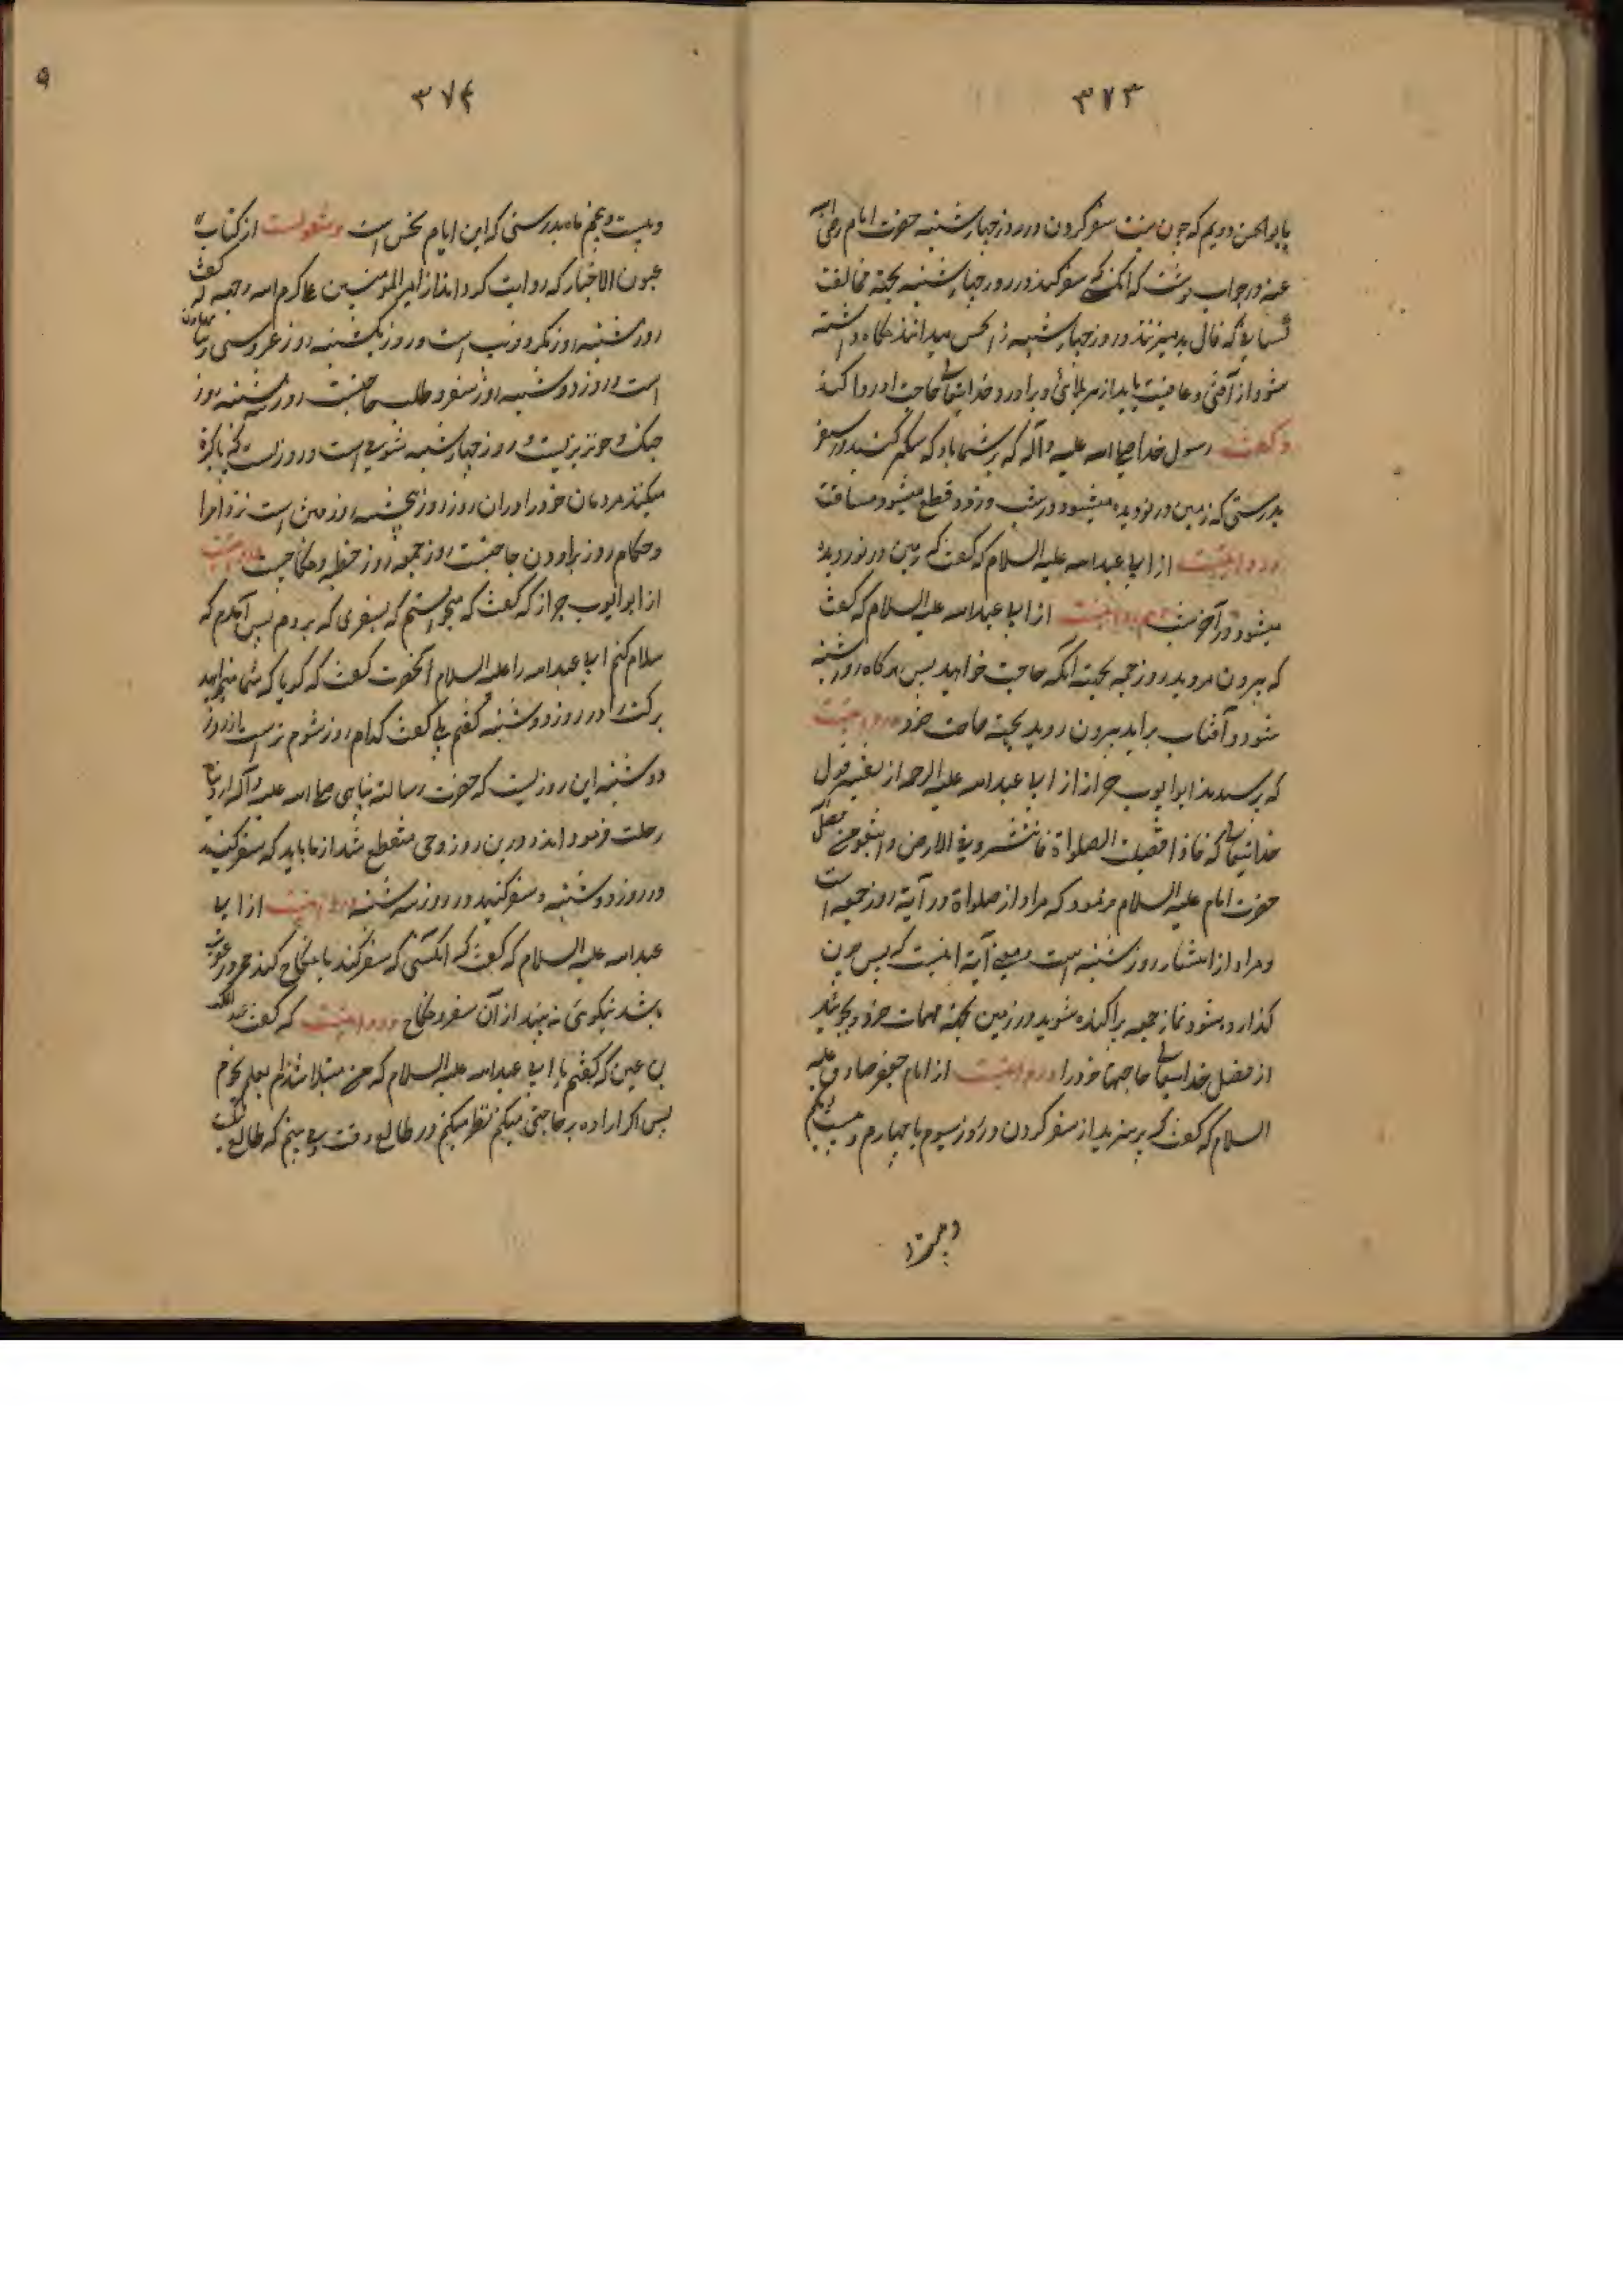 ۳۷۳
بابوالحسن دویم که چون هست سفر کردن در روز چهارشنبه حضرت امام رضی الله
عنه در جواب نوشت که آنکسی که سفر کند در روز چهارشنبه بجهة مخالفت
کسانی که فال بد میزنند در روز چهارشنبه و نحس میدانند نگاه داشته
شود از آفتی و عافیت یابد از هر بلائی و برآورد خدایتعالی حاجت او روا کند
و گفت رسول خدا صلی الله علیه وآله که بر شما باد که سیر کنید در سفر
بدرستی که زمین در نوردیده میشود در شب و زود قطع میشود مسافت
و روایتست از ابا عبدالله علیه السلام که گفت که زمین در نوردیده
میشود در آخر شب و هم روایتست از ابا عبدالله علیه السلام که گفت
که بیرون مروید روز جمعه بجهة آنکه حاجت خواهید پس هرگاه روز شنبه
شود و آفتاب برآید بیرون روید بجهة حاجت خود و روایتست
که پرسیدند ابوایوب خراز از ابا عبدالله علیه الرحمه از تفسیر قول
خدایتعالی که فاذا قضیت الصلواة فانتشروا فی الارض وابتغوا من فضل الله
حضرت امام علیه السلام فرمود که مراد از صلواة در آیه روز جمعه است
و مراد از انتشار روز شنبه است و معنی آیه اینست که پس چون
گذارده شود نماز جمعه پراکنده شوید در زمین بجهة مهمات خود و بجوئید
از فضل خدایتعالی حاجتهای خود را و روایتست از امام جعفر صادق علیه
السلام که گفت که بپرهیزید از سفر کردن در روز سیوم یا چهارم و بیست یکم
و بیست
۳۷۴
و بیست و پنجم ماه بدرستی که این ایام نحس است و منقولست از کتاب
عیون الاخبار که روایت کرده‌اند از امیرالمؤمنین علی کرم الله وجهه که گفت
روز شنبه روز مکر و فریب است و روز یکشنبه روز عروسی و بنا
است و روز دوشنبه روز سفر و طلب حاجتست روز سه شنبه روز
جنگ و خونریزیست و روز چهارشنبه شومی است و روزیست که پاکیزه
میکنند مردمان خود را در آن روز روز پنجشنبه روز رفتن است نزد امرا
و حکام روز برآوردن حاجتست روز جمعه روز خطبه و نکاحست و روایتست
از ابوایوب خراز که گفت که میخواستم که بسفری که بروم پس آمدم که
سلام کنم ابا عبدالله را علیه السلام آنحضرت گفت که گویا که شما میخواهید
برکت را در روز دوشنبه گفتم بلی گفت کدام روز شوم تر است از روز
دوشنبه این روزیست که حضرت رسالة پناهی صلی الله علیه وآله از دنیا
رحلت فرموده‌اند و درین روز وحی منقطع شد از ما باید که سفر نکنید
در روز دوشنبه و سفر کنید در روز سه شنبه و روایتست از ابا
عبدالله علیه السلام که گفت که آنکسی که سفر کند یا نکاح کند قمر در عقرب
باشد نیکوئی نه بیند از آن سفر و نکاح و روایتست که گفت عبدالملک
بن عین که گفتم با ابی عبدالله علیه السلام که من مبتلا شده‌ام بعلم نجوم
پس اگر اراده بر حاجتی میکنم نظر میکنم در طالع وقت پس می بینم که طالع